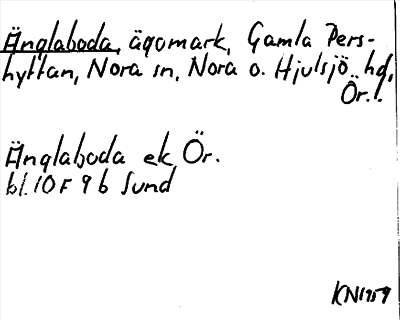 Änglaboda, ägomark, Gamla Pers-
hyttan, Nora sn, Nora o. Hjulsjö hd,
Ör.l.
Änglaboda ek Ör.
bl. 10 F 9 b Sund
KN1959